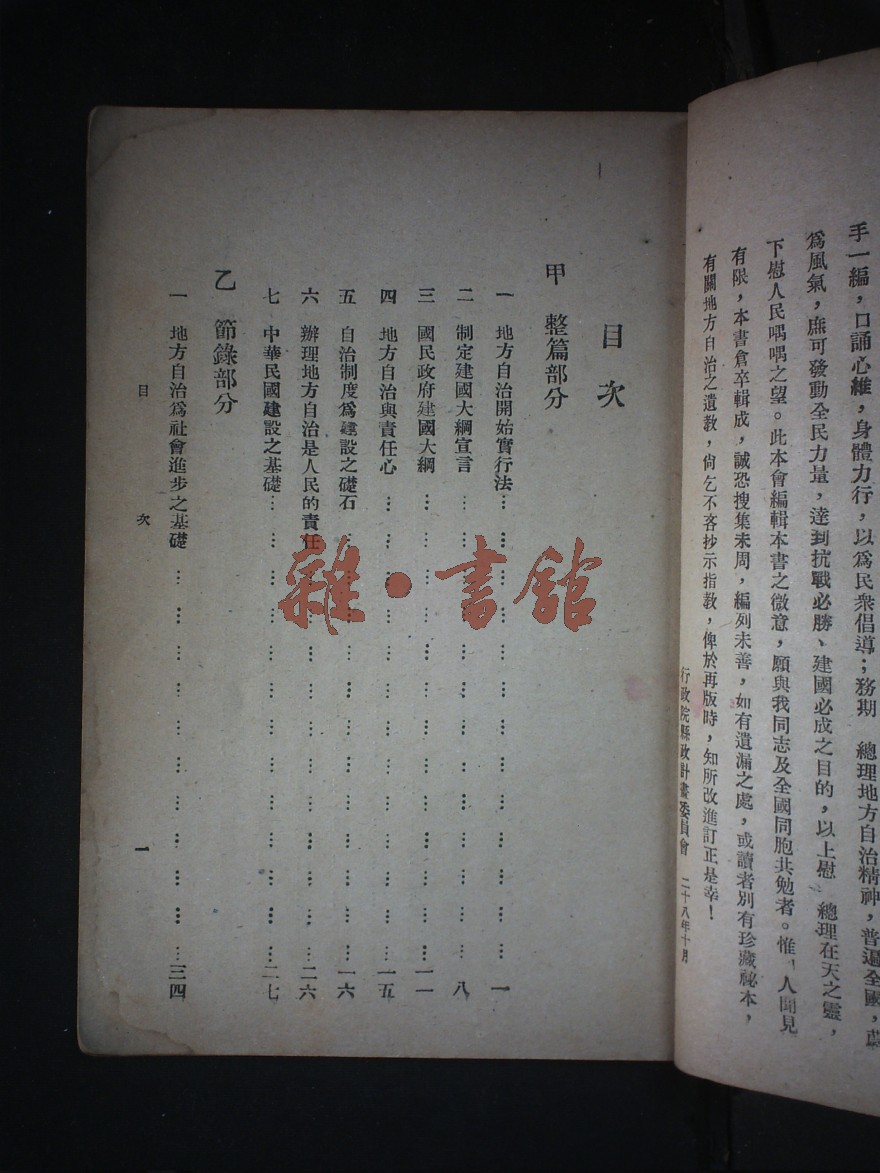 手一編，口誦心維，身體力行，以爲民衆倡導；務期　總理地方自治精神，普遍全國，蔚
爲風氣，庶可發動全民力量，達到抗戰必勝、建國必成之目的，以上慰　總理在天之靈，
下慰人民喁喁之望。此本會編輯本書之微意，願與我同志及全國同胞共勉者。惟，人聞見
有限，本書倉卒輯成，誠恐搜集未周，編列未善，如有遺漏之處，或讀者別有珍藏祕本，
有關地方自治之遺教，尙乞不吝抄示指教，俾於再版時，知所改進訂正是幸！
行政院縣政計畫委員會　二十八年十月
目次
甲　整篇部分
一　地方自治開始實行法…………一
二　制定建國大綱宣言…………八
三　國民政府建國大綱…………一一
四　地方自治與責任心…………一五
五　自治制度爲建設之礎石…………一六
六　辦理地方自治是人民的責任…………二六
七　中華民國建設之基礎…………二七
乙　節錄部分
一　地方自治爲社會進步之基礎…………三四
目　次　一
雜·書館